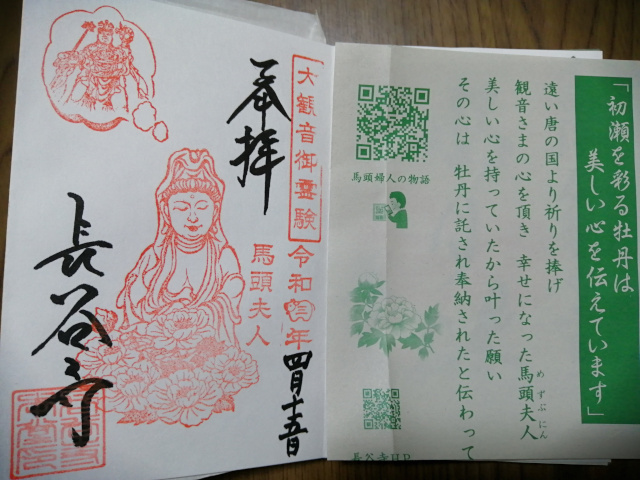 奉拝
大観音御霊験
馬頭夫人
令和
年
四月十五日
長谷寺
「初瀬を彩る牡丹は
美しい心を伝えています」
遠い唐の国より祈りを捧げ
観音さまの心を頂き 幸せになった馬頭夫人
めずぶにん
美しい心を持っていたから叶った願い
その心は 牡丹に託され奉納されたと伝わって
馬頭婦人の物語
長谷寺HP